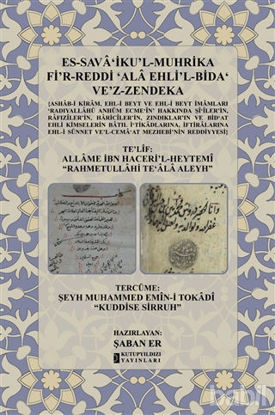 ES-SAVÂ'İKU'L-MUHRİKA
Fİ'R-REDDİ 'ALÂ EHLİ'L-BİDA'
VE'Z-ZENDEKA
(ASHÂB-I KİRÂM, EHL-İ BEYT VE EHL-İ BEYT İMÂMLARI
"RADIYALLÂHU ANHÜM ECME'ÎN" HAKKINDA Şİ'ÎLER'İN,
RÂFIZÎLER'İN, HÂRİCÎLER'İN, ZINDIKLAR'IN VE BİD'AT
EHLİ KİMSELERİN BÂTIL İ'TİKÂDLARINA, İFTİRÂLARINA
EHL-İ SÜNNET VE'L-CEMÂ'AT MEZHEBİ'NİN REDDİYYESİ)
TE'LÎF:
ALLÂME İBN HACERİ'L-HEYTEMÎ
"RAHMETULLÂHİ TE'ÂLÂ ALEYH"
TERCÜME:
ŞEYH MUHAMMED EMÎN-İ TOKÂDÎ
"KUDDİSE SİRRUH"
HAZIRLAYAN:
ŞABAN ER
KUTUPYILDIZI
YAYINLARI